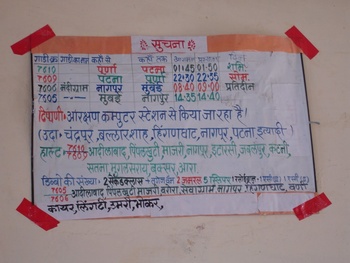 सुचना
गाडी क्र गाडी का नाम कहाँ से कहाँ तक
7610 पुर्णा पटना 01:45 01:50 शनि.
7609 पटना पुर्णा 22:30 22:55 सोम.
7606 नंदीग्राम नागपुर मुंबई 08:40 09:00 प्रतिदिन
7605 --- मुंबई नागपुर 14:35 14:40
टिप्पणी:- आरक्षण कम्पुटर स्टेशन से किया जा रहा है।
(उदा- चंद्रपुर, बल्लारशाह, हिंगणघाट, नागपुर, पटना इत्यादी.)
हाल्ट 7610 आदीलाबाद, पिंपलखुटी माजरी, नागपुर, इटारसी, जबलपुर, कटनी,
सतना मुगलसराय बक्सर, आरा
डिब्बो की संख्या:- 2
7605 7606 आदीलाबाद पिंपलखुटी माजरी वरोरा सेवाग्राम नागपुर हिंगणघाट, वणी
कायर, लिंगटी, उमरी, भोकर,